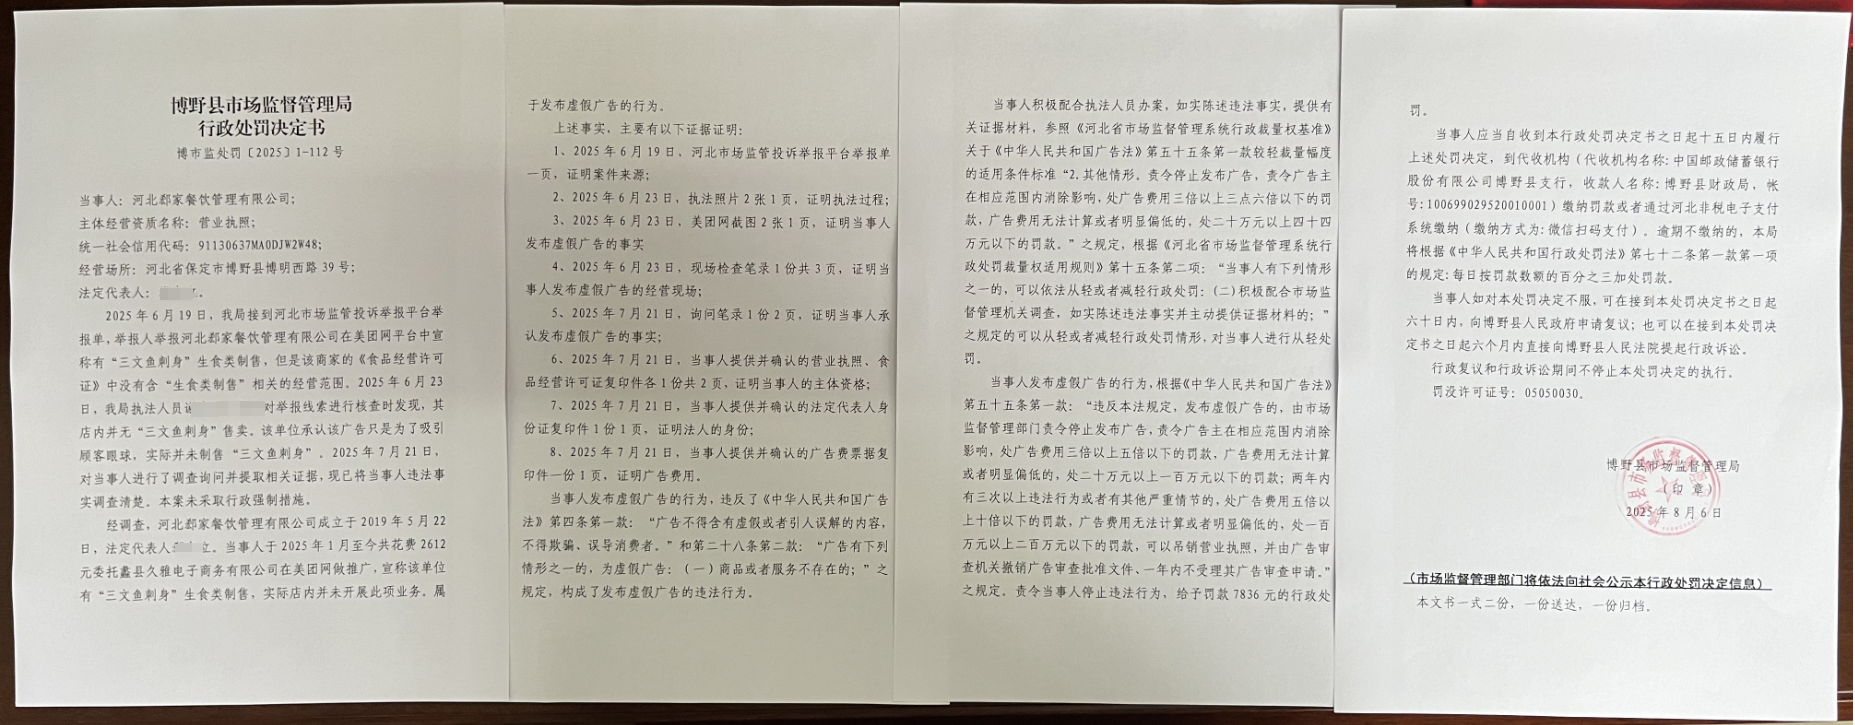 博野县市场监督管理局
行政处罚决定书
博市监处罚〔2025〕1-112 号
当事人：河北郄家餐饮管理有限公司；
主体经营资质名称：营业执照；
统一社会信用代码：91130637MA0DJW2W48；
经营场所：河北省保定市博野县博明西路 39 号；
法定代表人：
2025 年 6 月 19 日，我局接到河北市场监管投诉举报平台举
报单，举报人举报河北郄家餐饮管理有限公司在美团网平台中宣
称有“三文鱼刺身”生食类制售，但是该商家的《食品经营许可
证》中没有含“生食类制售”相关的经营范围。2025 年 6 月 23
日，我局执法人员 对举报线索进行核查时发现，其
店内并无“三文鱼刺身”售卖。该单位承认该广告只是为了吸引
顾客眼球，实际并未制售“三文鱼刺身”。2025 年 7 月 21 日，
对当事人进行了调查询问并提取相关证据，现已将当事人违法事
实调查清楚。本案未采取行政强制措施。
经调查，河北郄家餐饮管理有限公司成立于 2019 年 5 月 22
日，法定代表人 。当事人于 2025 年 1 月至今共花费 2612
元委托蠡县久雅电子商务有限公司在美团网做推广，宣称该单位
有“三文鱼刺身”生食类制售，实际店内并未开展此项业务。属
于发布虚假广告的行为。
上述事实，主要有以下证据证明：
1、2025 年 6 月 19 日，河北市场监管投诉举报平台举报单
一页，证明案件来源；
2、2025 年 6 月 23 日，执法照片 2 张 1 页，证明执法过程；
3、2025 年 6 月 23 日，美团网截图 2 张 1 页，证明当事人
发布虚假广告的事实
4、2025 年 6 月 23 日，现场检查笔录 1 份共 3 页，证明当
事人发布虚假广告的经营现场；
5、2025 年 7 月 21 日，询问笔录 1 份 2 页，证明当事人承
认发布虚假广告的事实；
6、2025 年 7 月 21 日，当事人提供并确认的营业执照、食
品经营许可证复印件各 1 份共 2 页，证明当事人的主体资格；
7、2025 年 7 月 21 日，当事人提供并确认的法定代表人身
份证复印件 1 份 1 页，证明法人的身份；
8、2025 年 7 月 21 日，当事人提供并确认的广告费票据复
印件一份 1 页，证明广告费用。
当事人发布虚假广告的行为，违反了《中华人民共和国广告
法》第四条第一款：“广告不得含有虚假或者引人误解的内容，
不得欺骗、误导消费者。”和第二十八条第二款：“广告有下列
情形之一的，为虚假广告：（一）商品或者服务不存在的；”之
规定，构成了发布虚假广告的违法行为。
当事人积极配合执法人员办案，如实陈述违法事实，提供有
关证据材料，参照《河北省市场监督管理系统行政裁量权基准》
关于《中华人民共和国广告法》第五十五条第一款较轻裁量幅度
的适用条件标准“2.其他情形。责令停止发布广告，责令广告主
在相应范围内消除影响，处广告费用三倍以上三点六倍以下的罚
款，广告费用无法计算或者明显偏低的，处二十万元以上四十四
万元以下的罚款。”之规定，根据《河北省市场监督管理系统行
政处罚裁量权适用规则》第十五条第二项：“当事人有下列情形
之一的，可以依法从轻或者减轻行政处罚：（二）积极配合市场监
督管理机关调查，如实陈述违法事实并主动提供证据材料的；”
之规定的可以从轻或者减轻行政处罚情形，对当事人进行从轻处
罚。
当事人发布虚假广告的行为，根据《中华人民共和国广告法》
第五十五条第一款：“违反本法规定，发布虚假广告的，由市场
监督管理部门责令停止发布广告，责令广告主在相应范围内消除
影响，处广告费用三倍以上五倍以下的罚款，广告费用无法计算
或者明显偏低的，处二十万元以上一百万元以下的罚款；两年内
有三次以上违法行为或者有其他严重情节的，处广告费用五倍以
上十倍以下的罚款，广告费用无法计算或者明显偏低的，处一百
万元以上二百万元以下的罚款，可以吊销营业执照，并由广告审
查机关撤销广告审查批准文件、一年内不受理其广告审查申请。”
之规定。责令当事人停止违法行为，给予罚款 7836 元的行政处
罚。
当事人应当自收到本行政处罚决定书之日起十五日内履行
上述处罚决定，到代收机构（代收机构名称：中国邮政储蓄银行
股份有限公司博野县支行，收款人名称：博野县财政局，帐
号：100699029520010001）缴纳罚款或者通过河北非税电子支付
系统缴纳（缴纳方式为：微信扫码支付）。逾期不缴纳的，本局
将根据《中华人民共和国行政处罚法》第七十二条第一款第一项
的规定：每日按罚款数额的百分之三加处罚款。
当事人如对本处罚决定不服，可在接到本处罚决定书之日起
六十日内，向博野县人民政府申请复议；也可以在接到本处罚决
定书之日起六个月内直接向博野县人民法院提起行政诉讼。
行政复议和行政诉讼期间不停止本处罚决定的执行。
罚没许可证号：05050030。
博野县市场监督管理局
（印 章）
2025 年 8 月 6 日
（市场监督管理部门将依法向社会公示本行政处罚决定信息）
本文书一式二份，一份送达，一份归档。